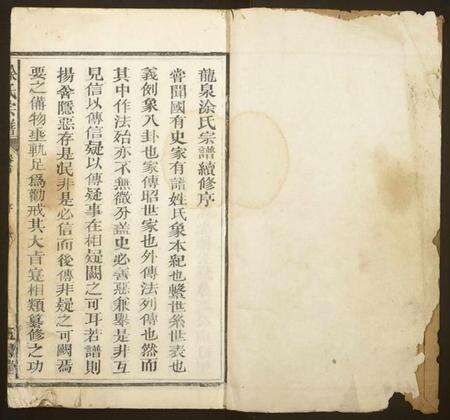 龍泉涂氏宗譜續修序
嘗聞國有史家有譜姓氏象本紀也繫世系世表也
義例象八卦也家傳昭世家也外傳法列傳也然而
其中作法殆亦不無微分盖史必善惡兼舉是非互
見信以傳信疑以傳疑事在相疑闕之可耳若譜則
揚善隱惡存是泯非是必信而後傳非疑之可闕焉
要之備物垂軌足為勸戒其大肯寔相類纂修之功
氏宗譜
序